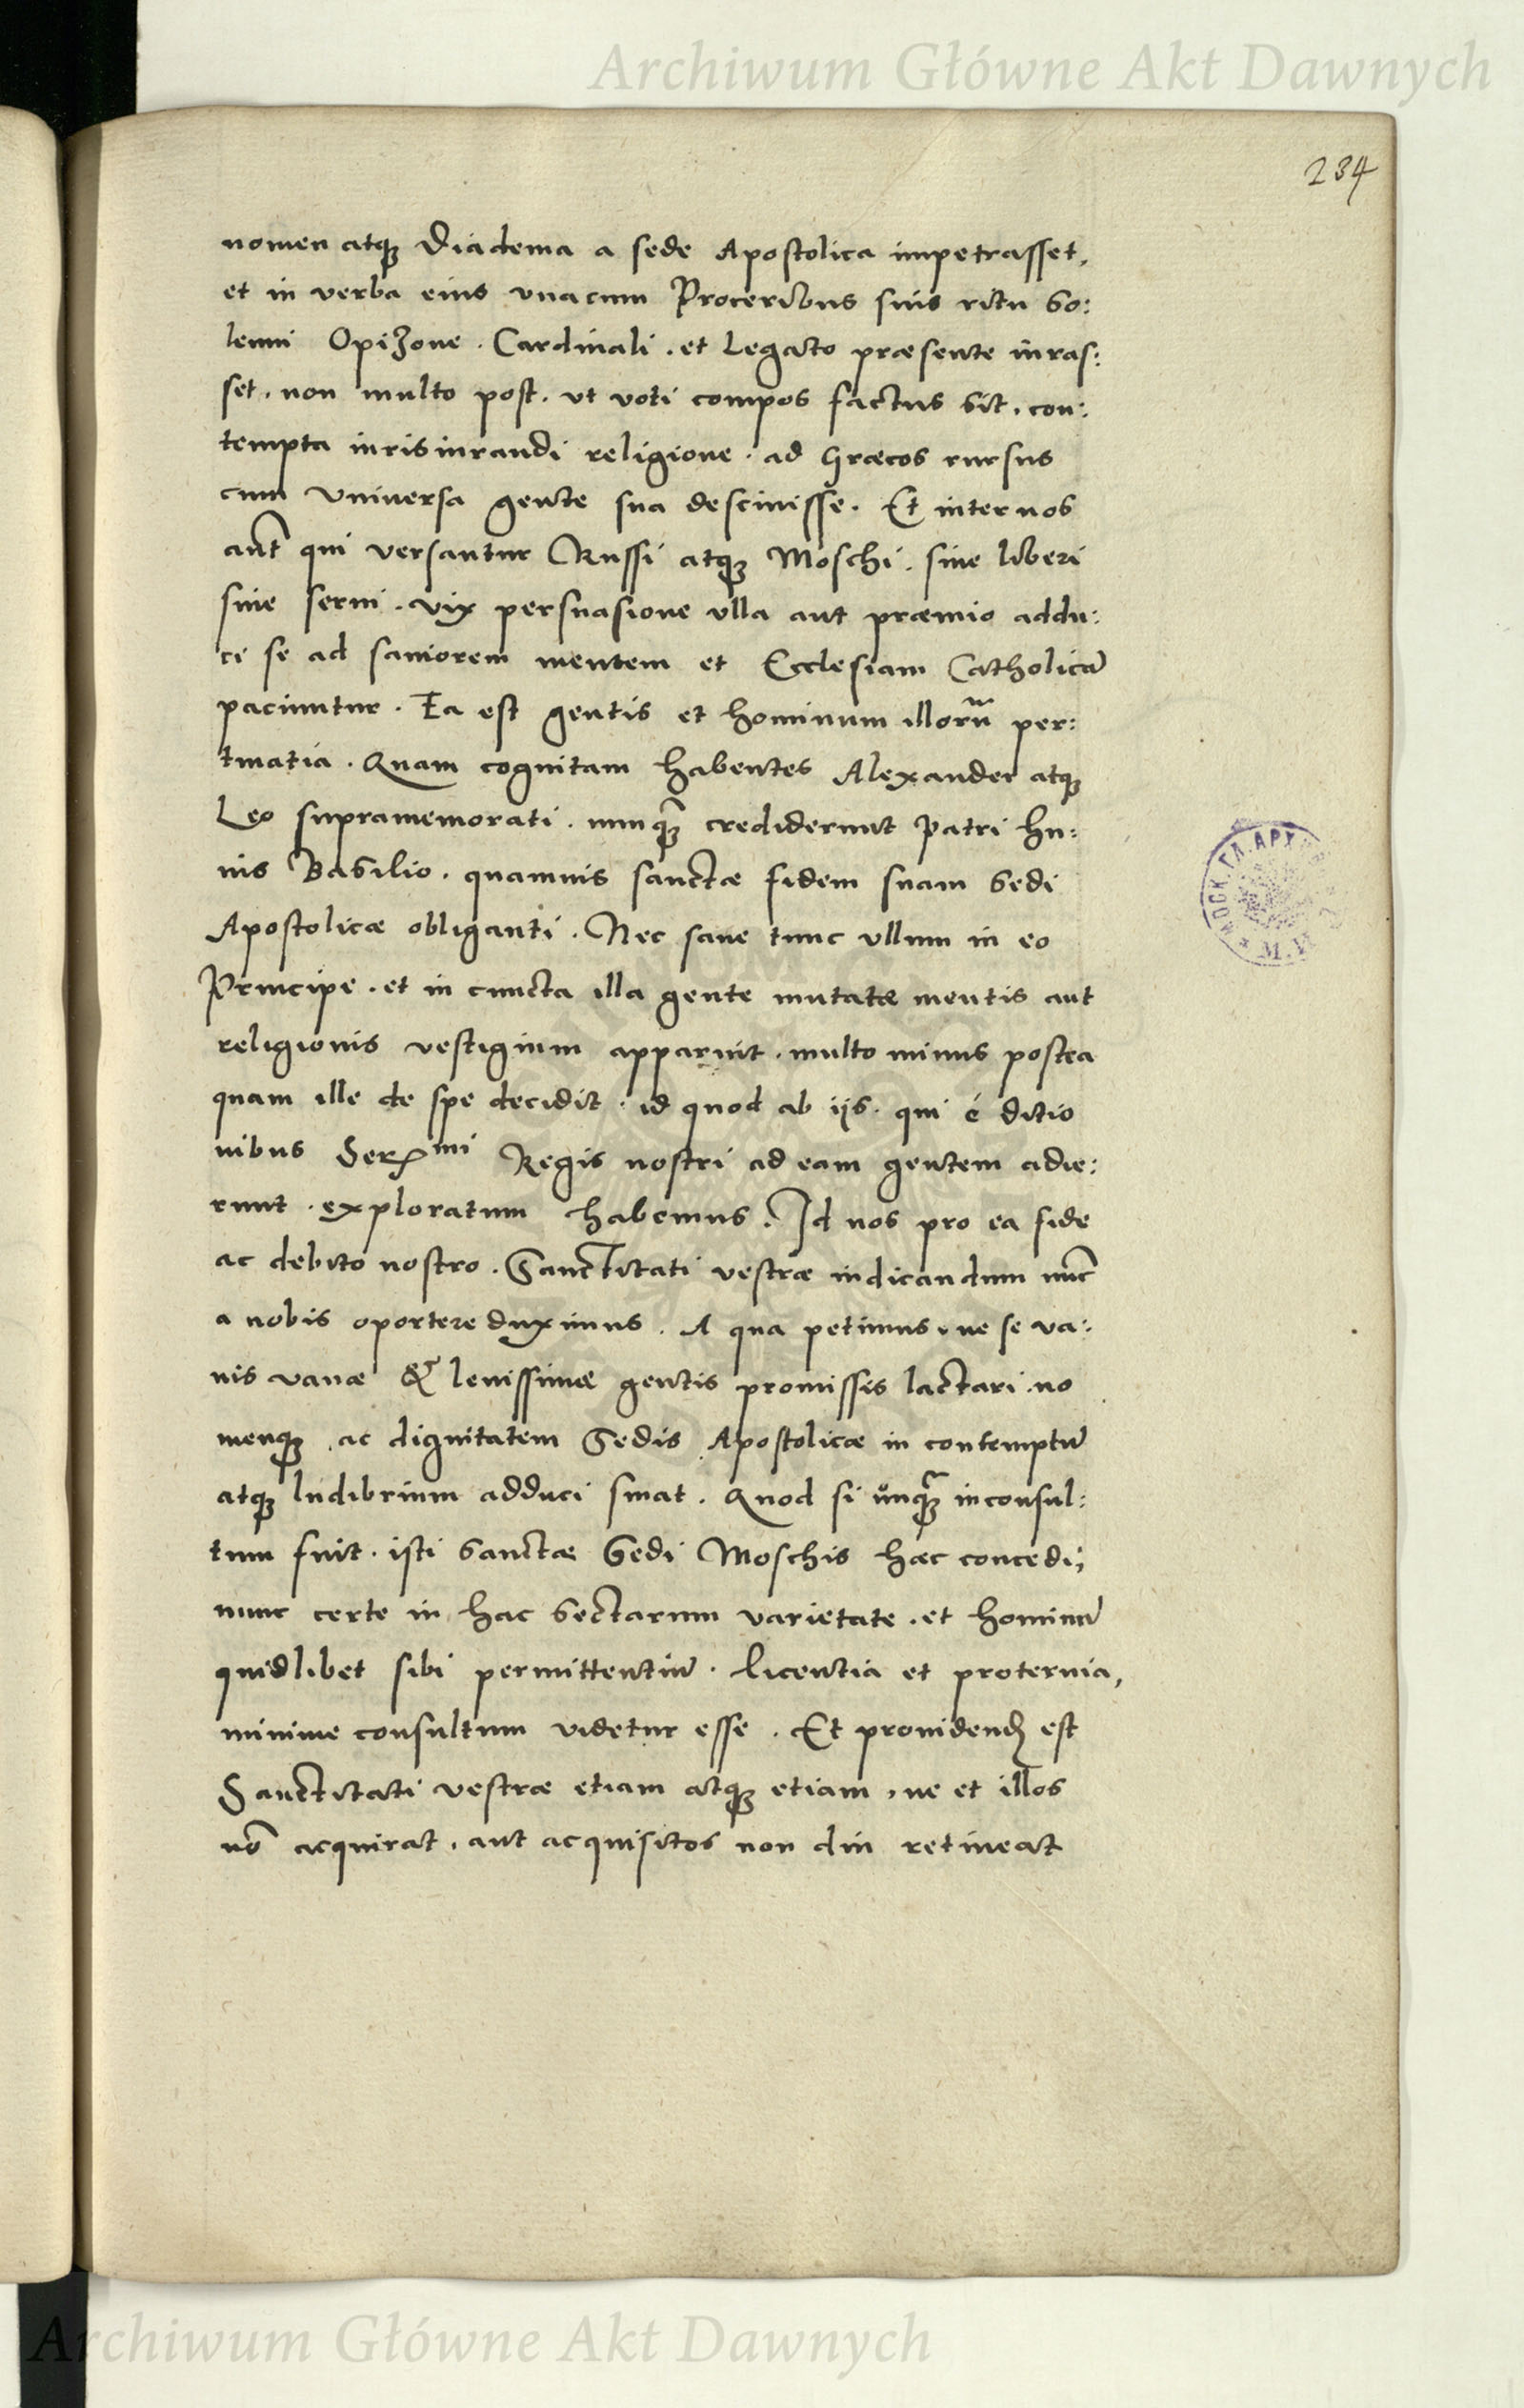 Archiwum Główne Akt Dawnych
234
nomen atq₃ Diadema a sede Apostolica impetrasset,
et in verba eius vnacum Proceribus suis ritu so:
lemni Opizone . Cardinali . et Legato præsente iuras:
set . non multo post . vt voti compos factus sit . con:
tempta iurisiurandi religione . ad Græcos rursus
cum vniuersa gente sua desciuisse . Et inter nos
aut̃ qui versantur Russi atq₃ Moschi . siue liberi
siue serui . vix persuasione vlla aut præmio addu:
ci se ad saniorem mentem et Ecclesiam Catholicã
paciuntur . Ea est gentis et hominum illorũ per:
tinatia . Quam cognitam habentes Alexander atq₃
Leo supramemorati . nunq̃₃ crediderunt Patri hu:
uis Basilio . quamuis sanctæ fidem suam Sedi
Apostolicæ obliganti . Nec sane tunc vllum in eo
Principe . et in cuncta illa gente mutatæ mentis aut
religionis vestigium apparuit . multo minus postea
quam ille de spe decidit . id quod ab ijs . qui é ditio
nibus Ser^mi Regis nostri ad eam gentem adie:
runt . exploratum habemus . Id nos pro ea fide
ac debito nostro . Sanctitati vestræ indicandum nũc
a nobis oportere duximus . A qua petimus . ne se va:
nis vanæ & leuissimæ gentis promissis lactari . no
menq₃ ac dignitatem Sedis Apostolicæ in contemptũ
atq₃ ludibrium adduci sinat . Quod si ũnq̃₃ inconsul:
tum fuit . isti sanctæ Sedi Moschis hæc concedi;
nunc certe in hac sectarum varietate . et hominũ
quidlibet sibi permittentiũ . licentia et proteruia,
minime consultum videtur esse . Et prouidend̃ est
Sanctitati vestræ etiam atq₃ etiam . ne et illos
nõ acquirat . aut acquisitos non diu retineat
МОСК. ГЛ. АРХ
М.
Archiwum Główne Akt Dawnych